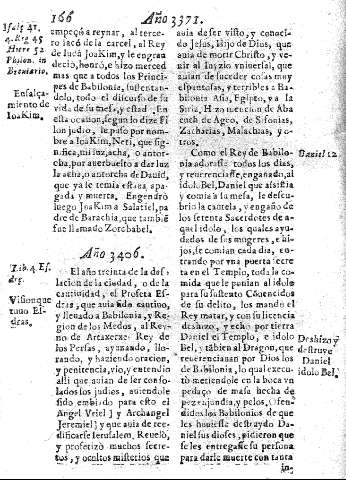 166
Año 3371.
4. Reg. 45
Hiere 52
Philon. in
Breuiario.
Ensalça-
miento de
IoaKim.
empeçó a reynar, al terce-
ro sacó de la carcel, al Rey
de Iudá IoaKim, y le engran
deció, honró, e hizo merced
mas que a todos los Princi-
pes de Babilonia, sustentan-
delo, todo el discurso de su
vida de mesa, y estad. En
esta ocasion, segun lo dize Fi
lon judio, le puso por nombre
a IoaKim, Neri, que sig-
nifica, mi luz, acha, o antor-
cha, por auer buelto a dar luz
la acha, o antorcha de Dauid,
que ya le temia estaua, apa-
gada y muerta. Engendró
luego IoaKim a Salatiel, pa-
dre de Barachia, que tambiē
fue llamado Zorobabel.
Año 3406.
Lib. 4. Es-
dræ.
Vision que
tuuo El-
dras.
El año treinta de la des-
lacion de la ciudad, o de la
cautiuidad, el Profeta Es-
dras, que auia sido cautiuo,
y lleuado a Babilonia, y Re-
gion de los Medos, al Rey-
no de Artaxerxe Rey de
los Persas, ayunando, llo-
rando, y haziendo oracion,
y penitencia, vio, y entendio
alli que auian de ser conso-
lados los judios, auiendole
sido embiado para esto el
Angel Vriel] y Archangel
Jeremiel] y que auia de ree-
dificarse Ierusalem. Reueló,
y profetizó muchos secre-
tos, y ocultos misterios que
auia de ser visto, y conoci-
do Iesus, Hijo de Dios, que
auia de morir Christo, y ve-
nir al Iuyzio vniuersal, que
auian de suceder cosas muy
espantosas, y terribles a Ba-
bilonia Asia, Egipto, y a la
Siria, Hizo mencion de Aba
cuch de Ageo, de Sifonias,
Zacharias, Malachias, y o-
tros.
Daniel 12
Como el Rey de Babilo-
nia adorasse todos los dias,
y reuerenciasse, engañado, al
idolo Bel, Daniel que assistia
y comia a su mesa, le descu-
brio la cautela, y engaño de
los setenta Sacerdotes de a-
quel idolo, los quales ayu-
dados de sus mugeres, e hi-
jos, se comian cada dia, en-
trando por vna puerta secre
ta en el Templo, toda la co-
mida que le ponian al idolo
para su sustento Cōuencidos
de su delito, los mandó el
Rey matar, y con su licencia
deshizo, y echo por tierra
Daniel el Templo, e idolo
Bel, y tābien al Dragon, que
reuerenciauan por Dios los
de Babilonia, lo qual execu-
tó metiendole en la boca vn
pedaço de masa hecha de
pez, enjundia, y pelos, Ofen-
didos los Babilonios de que
les huuiesse destruydo Da-
niel sus dioses, pidieron que
se les entregasse su persona
para darle muerte con tanta
Deshizo y
destruye
Daniel
idolo Bel.
in-